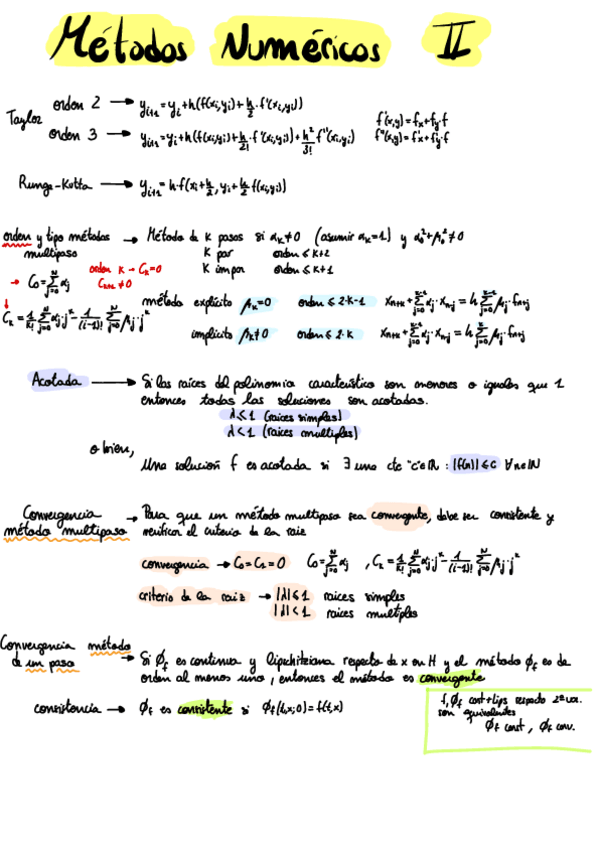 Métodos Numéricos II
Taylor
orden 2 → y_{i+1} = y_i + h(f(x_i,y_i) + h/2 · f'(x_i,y_i))
orden 3 → y_{i+1} = y_i + h(f(x_i,y_i) + h/2! · f'(x_i,y_i)) + h²/3! f''(x_i,y_i)
f'(x,y) = f_x + f_y · f
f''(x,y) = f'_x + f'_y · f
Runge-Kutta → y_{i+1} = h·f(x_i + h/2, y_i + h/2 f(x_i,y_i))
orden y tipo métodos multipaso → Método de k pasos si α_k ≠ 0 (asumir α_k = 1) y α_0² + β_0² ≠ 0
K par orden ≤ k+2
K impar orden ≤ k+1
orden k → C_k = 0
C_{k+1} ≠ 0
→ C_0 = Σ_{j=0}^{N} α_j
método explícito β_k = 0 orden ≤ 2·k-1
implícito β_k ≠ 0 orden ≤ 2·k
Acotada → Si las raíces del polinomio característico son menores o iguales que 1
entonces todas las soluciones son acotadas.
λ ≤ 1 (raíces simples)
λ < 1 (raíces multiples)
o bien,
Una solución f es acotada si ∃ una cte "c" ∈ ℝ : |f(n)| ≤ c ∀ n ∈ ℕ
Convergencia método multipaso → Para que un método multipaso sea convergente, debe ser consistente y
verificar el criterio de la raiz
convergencia → C_0 = C_1 = 0 C_0 = Σ_{j=0}^{N} α_j
criterio de la raiz → |λ| ≤ 1 raices simples
|λ| < 1 raices multiples
Convergencia método de un paso → Si Φ_f es continua y lipschitziana respecto de x on H y el método Φ_f es de
orden al menos uno, entonces el método es convergente
consistencia → Φ_f es consistente si Φ_f(t,x;0) = f(t,x)
f, Φ_f cont + lips respecto 2ª va.
son equivalentes
Φ_f const, Φ_f conv.